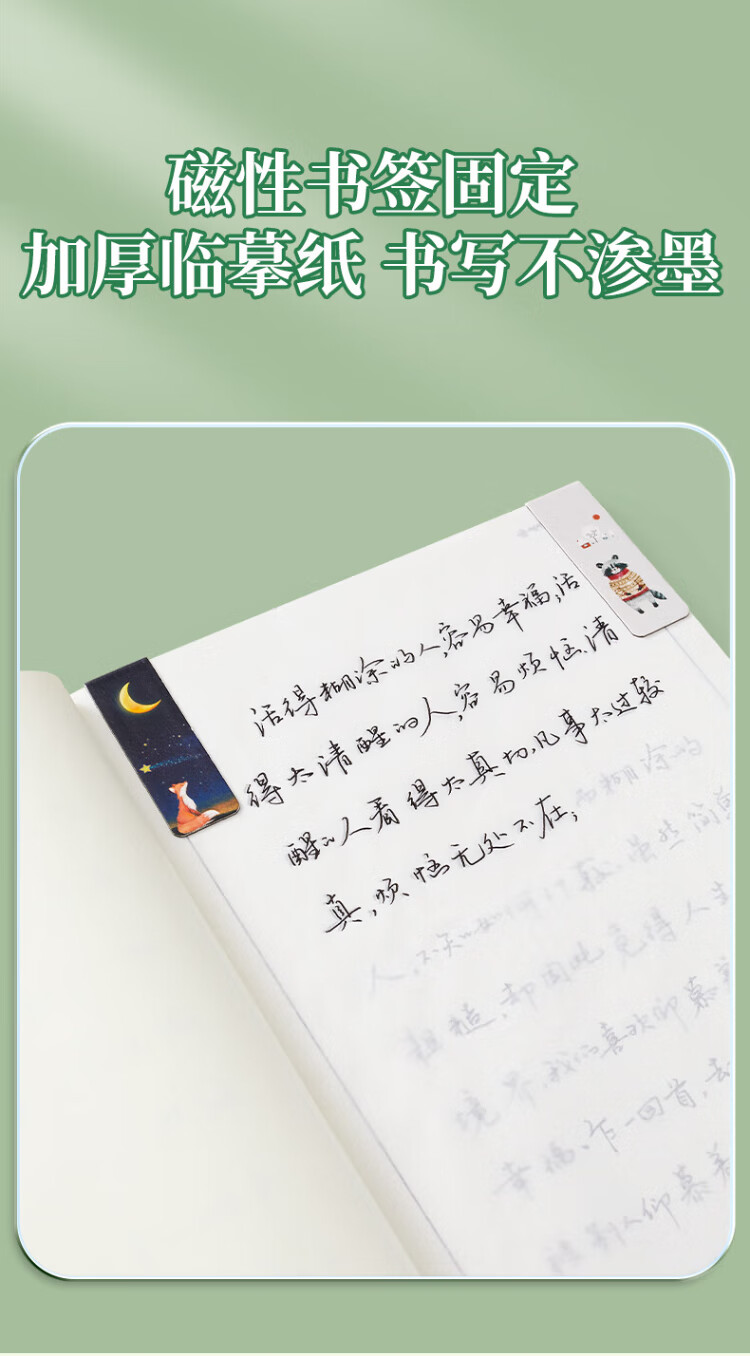 磁性书签固定
加厚临摹纸 书写不渗墨
活得糊涂的人,容易幸福,活
得太清醒的人,容易烦恼.清
醒的人看得太真切,凡事太过较
真,烦恼无处不在;
而糊涂的
人,不知如何计较,虽然简单
粗糙,却因此觅得人生
境界.我们喜欢仰慕
幸福、乍一回首,
人仰慕着